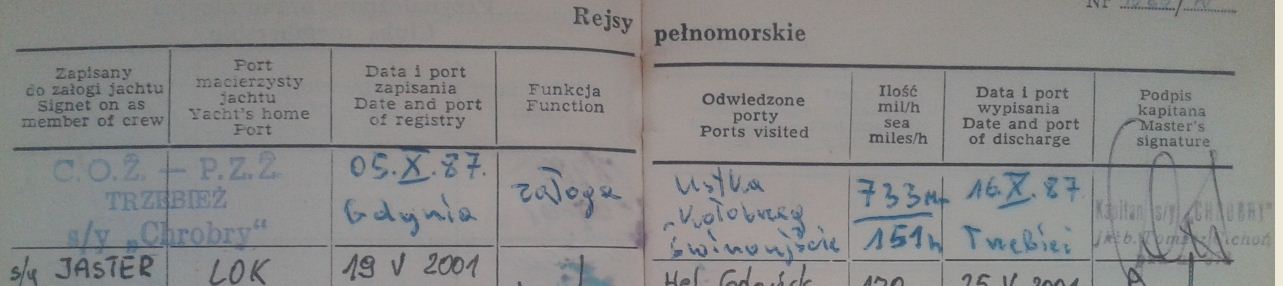 Rejsy pełnomorskie
Nr
Zapisany
do załogi jachtu
Signet on as
member of crew
Port
macierzysty
jachtu
Yacht's home
Port
Data i port
zapisania
Date and port
of registry
Funkcja
Function
Odwiedzone
porty
Ports visited
Ilość
mil/h
sea
miles/h
Data i port
wypisania
Date and port
of discharge
Podpis
kapitana
Master's
signature
C.O.Ż. – P.Z.Ż.
TRZEBIEŻ
s/y „Chrobry"
05.X.87.
Gdynia
załoga
Ustka
Kołobrzeg
Świnoujście
733
151h
16.X.87
Trzebież
Kapitan s/y "CHROBRY"
s/y JASTER
LOK
19 V 2001
Hel Gdańsk
170
25 V 2001